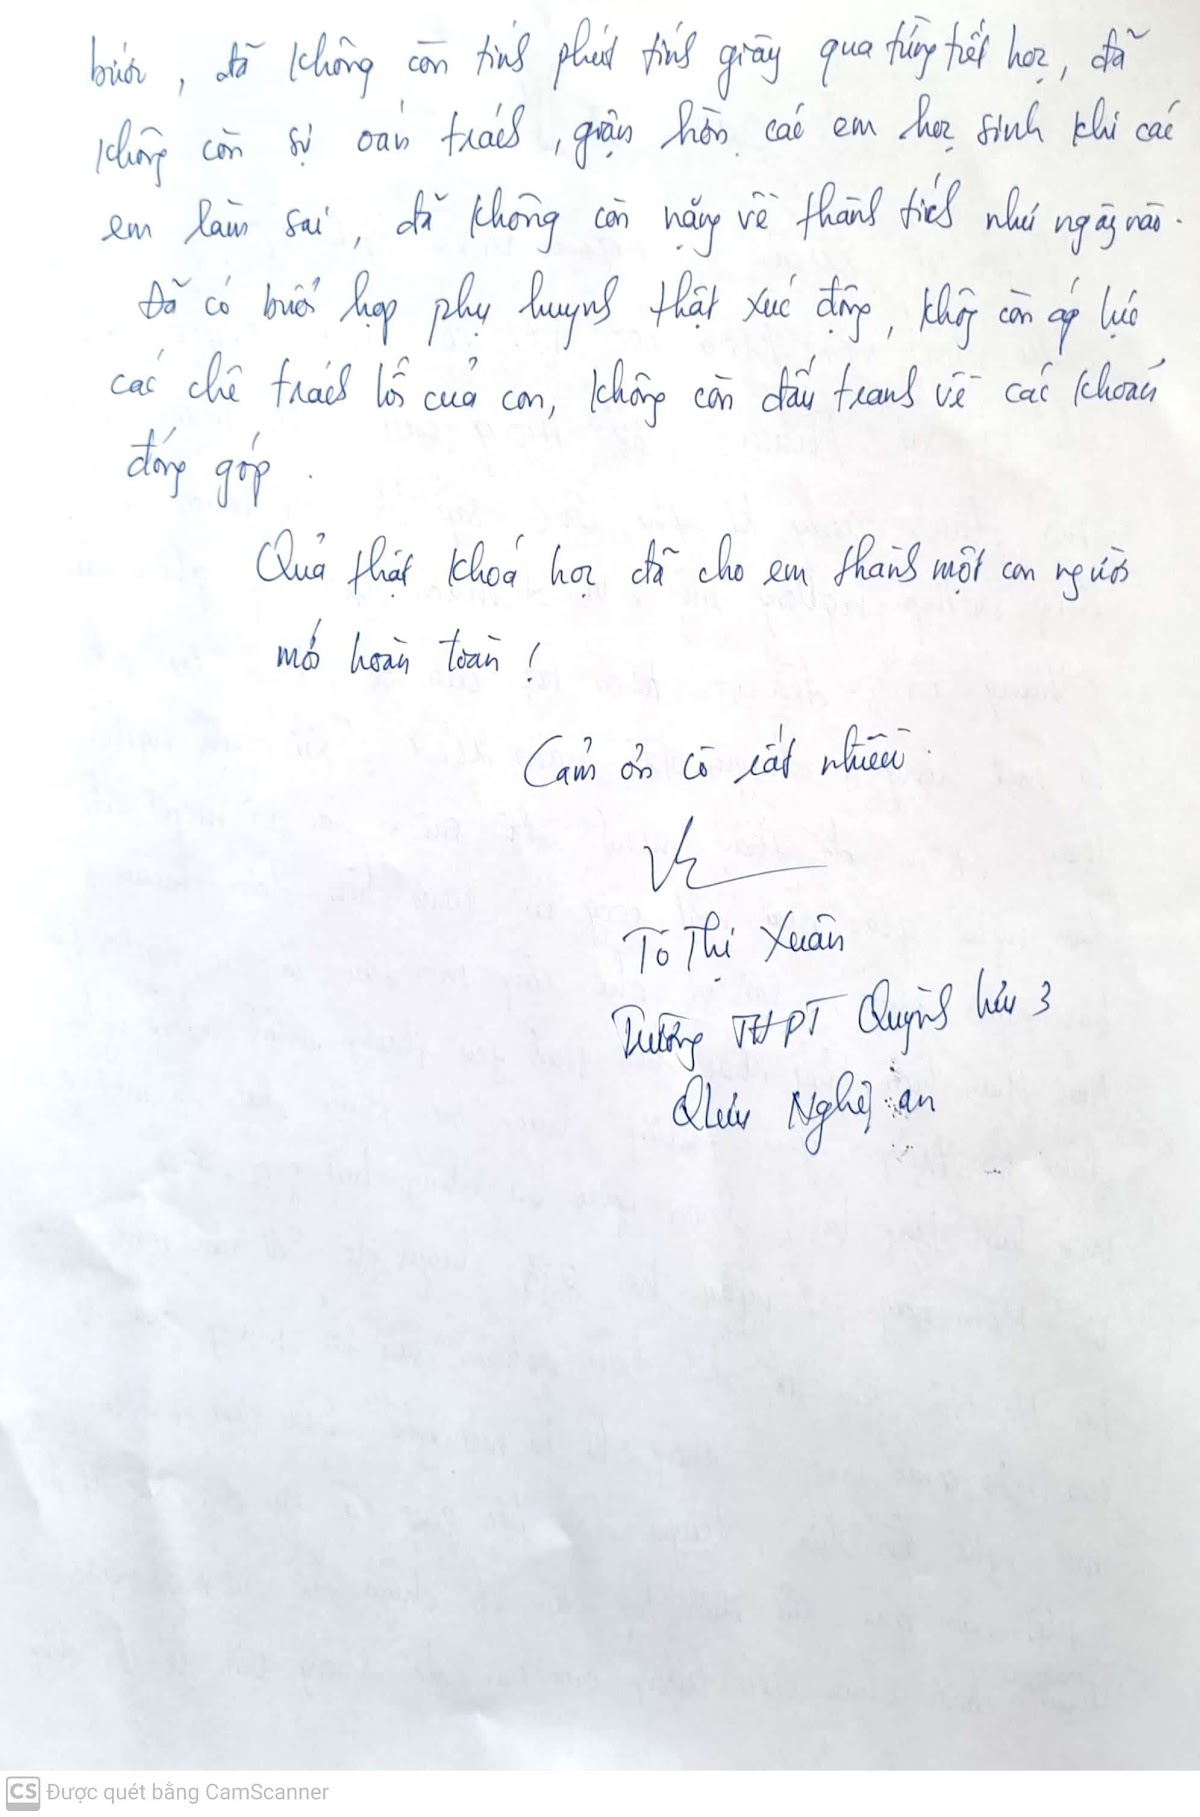 bước, đã không còn tính phút tính giây qua từng tiết học, đã
không còn sự oán trách, giận hờn các em học sinh khi các
em làm sai, đã không còn nặng về thành tích như ngày nào.
Đã có buổi họp phụ huynh thật xúc động, không còn áp lực
các chê trách lỗi của con, không còn đấu tranh về các khoản
đóng góp.
Quả thật khoá học đã cho em thành một con người
mới hoàn toàn!
Cảm ơn cô rất nhiều.
Tô Thị Xuân
Trường THPT Quỳnh Lưu 3
Nghệ an
CS Được quét bằng CamScanner